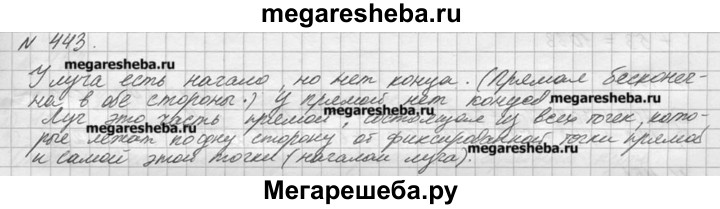 megaresheba.ru
№ 443.
megaresheba.ru megaresheba.ru
У луча есть начало, но нет конца. (Прямая бесконеч-
ная в обе стороны.) У прямой нет концов
megaresheba.ru
Луч это часть прямой, состоящая из всех точек, кото-
megaresheba.ru megaresheba.ru
рые лежат по одну сторону от фиксированной точки прямой
и самой этой точки (началом луча).
Мегарешеба.ру